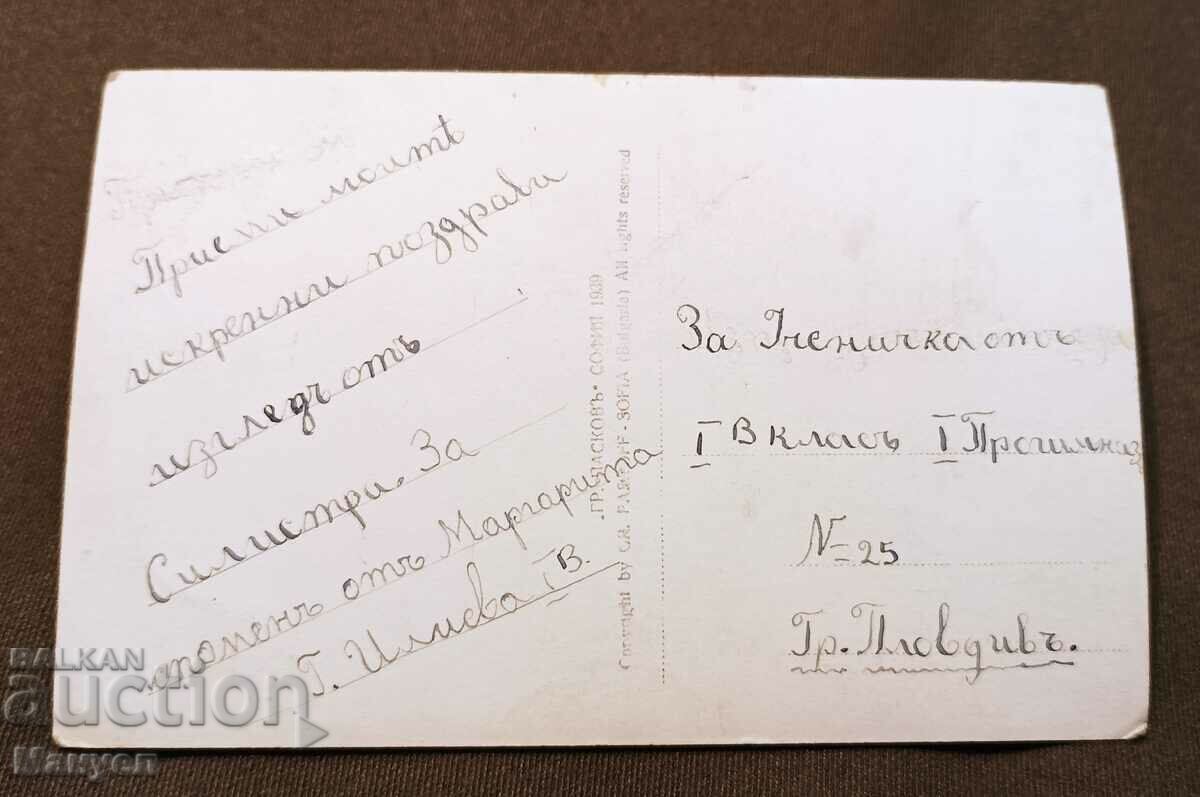 Приеми моитѣ
искренни поздрави
изгледъ отъ
Силистра. За
споменъ отъ Маргарита
Г. Илиева I В.
ГР. ПАСКОВЪ • СОФИЯ 1939
Copyright by GR. PASKOFF - SOFIA (Bulgaria) All rights reserved
За Ученичка отъ
I В класъ I Прогимназ
N=25
Гр. Пловдивъ.
BALKAN
auction
Мануел